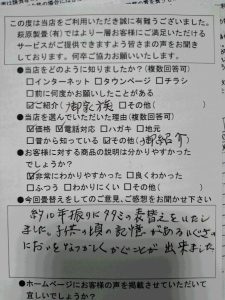 この度は当店をご利用いただき誠に有難うございました。
萩原製畳(有)ではより一層お客様にご満足いただける
サービスがご提供できますよう皆さまの声をお聞き
しております。何卒ご協力お願いいたします。
●当店をどのように知りましたか?(複数回答可)
□インターネット □タウンページ □チラシ
□前に何度かお願いしたことがある
☑ご紹介(御家族) □その他( )
●当店を選んでいただいた理由(複数回答可)
☑価格 ☑電話対応 □ハガキ □地元
□昔から知っている ☑その他(御紹介)
●お客様に対する商品の説明は分かりやすかった
でしょうか?
☑非常にわかりやすかった □良くわかった
□ふつう □わかりにくい □その他( )
●今回畳替えをしてのご意見、ご感想をお聞かせ下さい
約10年振りにタタミの表替えをいたし
ました。子供の頃の記憶がある
においをなつかしくかぐことが出来ました
●ホームページにお客様の声を掲載させていただいて
宜しいでしょうか?